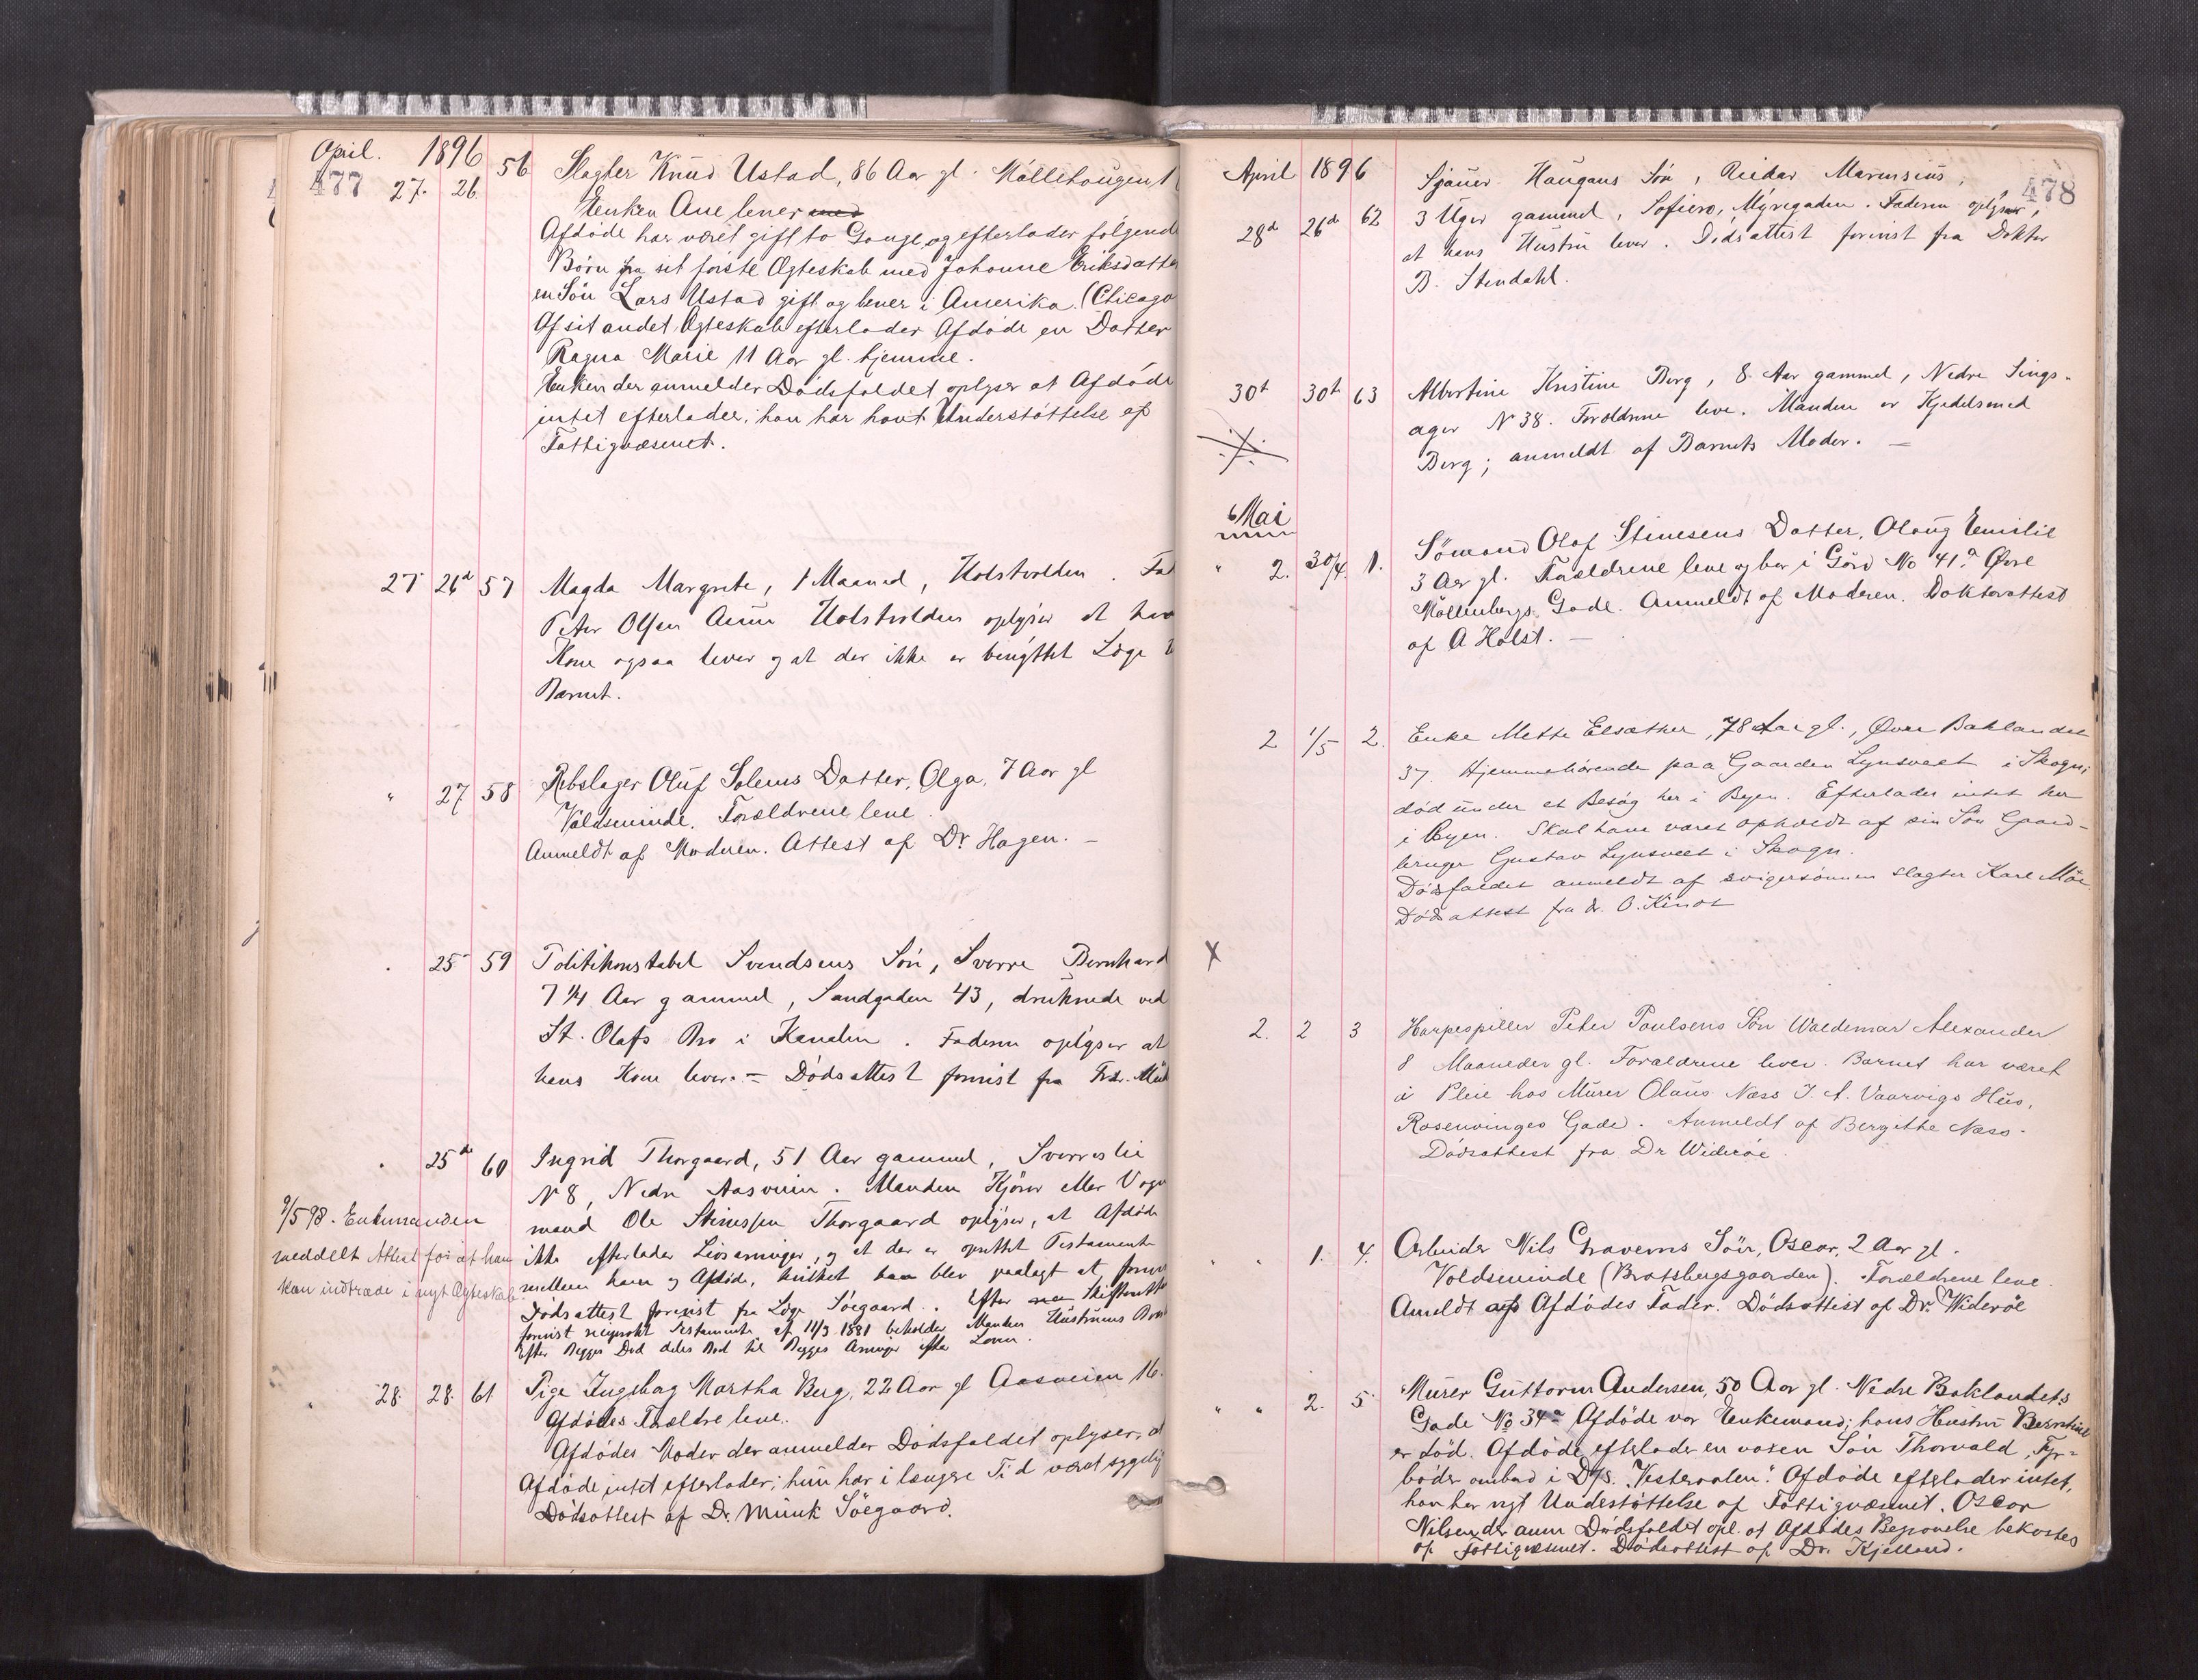 April. 1896
477 27. 26. 56 Slagter Knud Ustad, 86 Aar gl. Möllehaugen 1
Enken Ane lever med
Afdöde har været gift to Gange, og efterlader följende
Börn fra sit første Ægteskab med Johanne Eriksdatter
en Sön Lars Ustad gift og lever i Amerika. (Chicago
Af sit andet Ægteskab efterlader Afdöde en Datter
Ragna Marie 11 Aar gl. hjemme.
Enken der anmelder Dödsfaldet oplyser at Afdöde
intet efterlader, han har havt Understöttelse af
Fattigvæsenet.
27 26d 57 Magda Margrete, 1 Maaned, Holstvolden. Fad
Peter Olsen Aune Holstvolden oplyser at hans
Kone ogsaa lever og at der ikke er benyttet Læge
Barnet.
" 27 58 Rebslager Oluf Solems Datter, Olga, 7 Aar gl
Voldsminde. Forældrene leve.
Anmeldt af Moderen. Attest af Dr. Hagen. -
. 25 59 Politikonstabel Svendsens Sön, Sverre Bernhard
7 1/4 Aar gammel, Sandgaden 43, druknede ved
St. Olafs Bro i Kanalen. Faderen oplyser at
hans Kone lever. - Dödsattest forevist fra
. 25de 60 Ingrid Thorgaard, 51 Aar gammel, Sverreslie
N 8, Nedre Aasveien. Manden Kjörer eller Vogn
mand Ole Thorgaard oplyser, at Afdöde
9/5 98. Enkemanden
meddelt Attest for at han
kan indtræde i nyt Ægteskab.
ikke efterlader Livsarvinger, og at der er oprettet Testament
mellem ham og Afdöde, hvilket han blev paalagt at
Dödsattest forevist fra Læge Söegaard. Efter
forevist Testamente af 11/3 1881 beholder Manden Hustruens Bo
Efter Begges Död deles Boet til Begges Arvinger efter Loven.
. 28. 28. 61. Pige Ingeborg Martha Berg, 22 Aar gl Aasveien 16.
Afdödes Forældre leve.
Afdödes Moder der anmelder Dödsfaldet oplyser, at
Afdöde intet efterlader; hun har i længere Tid været sygelig
Dödsattest af Dr. Munk Söegaard.
April 1896
478
28d 26d 62 Sjauer Haugans Sön, Reidar Marensius,
3 Uger gammel, Sofiero, Myregaden. Faderen oplyser,
at hans Hustru lever. Dödsattest forevist fra Doktor
B. Stendahl.
30t 30t 63 Albertine Kristine Berg, 8 Aar gammel, Nedre Sings-
ager N 38. Forældrene leve. Manden er Kjedelsmed
Berg; anmeldt af Barnets Moder. -
Mai
" 2. 30/4. 1. Sömand Olaf Stinesens Datter, Olaug Emilie
3 Aar gl. Forældrene leve og bor i Gård No 41a Övre
Möllenbergs Gade. Anmeldt af Moderen. Doktorattest
af A Holst. -
2 1/5 2. Enke Mette Elsæther, 78 Aar gl., Øvre Baklandet
37. Hjemmehörende paa Gaarden Lynsveet i Skogn,
död under et Besög her i Byen. Efterlader intet her
i Byen. Skal have været opholdt af sin Sön Gaard-
bruger Gustav Lynsveet i Skogn.
Dödsfaldet anmeldt af svigersönnen slagter Karl Möe.
Dödsattest fra dr. O.
X
2. 2 3 Harpespiller Peter Paulsens Sön Waldemar Alexander
8 Maaneder gl. Forældrene lever. Barnet har været
i Pleie hos Murer Olaus Næss J. A. Vaarvigs Hus,
Rosenvinges Gade. Anmeldt af Bergithe Næss.
Dödsattest fra Dr Wideröe.
" " 1. 4. Arbeider Nils Graverns Sön, Oscar, 2 Aar gl.
Voldsminde (Bratsbergsgaarden). Forældrene leve.
Ameldt af Afdödes Fader. Dödsattest af Dr. Wideröe
" " 2. 5 Murer Guttorm Andersen, 50 Aar gl. Nedre Baklandets
Gade No 34a Afdöde var Enkemand; hans Hustru Berntine
er död. Afdöde efterlader en voxen Sön Thorvald, Fyr-
böder ombord i D/S. "Vesteraalen". Afdöde efterlader intet,
han har nyt Understöttelse af Fattigvæsenet. Oscar
Nilsen der anm Dödsfaldet opl. at Afdödes Begravelse bekostes
af Fattigvæsenet. Dödsattest af Dr. Kjelland.